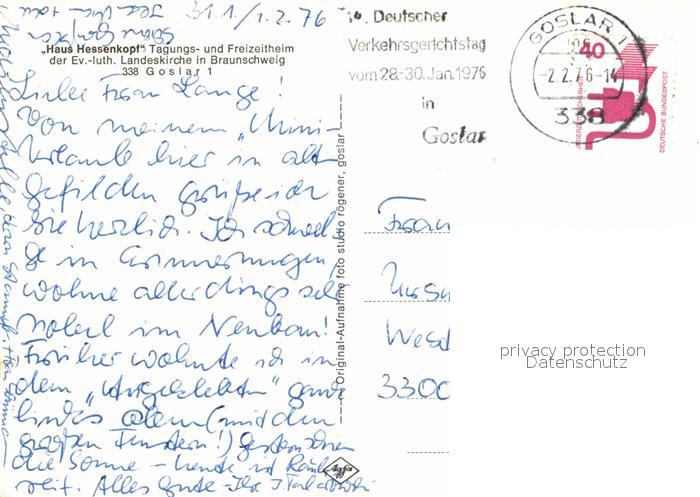 31.1./1.2.76
„Haus Hessenkopf“ Tagungs- und Freizeitheim
der Ev.-luth. Landeskirche in Braunschweig
338 Goslar 1
Liebe Frau Lange!
Von meinem „Mini-
Urlaub“ hier in alten
Gefilden grüße ich
Sie herzlich. Ich schwel-
ge in Erinnerungen,
wohne allerdings sehr
nobel im Neubau!
Früher wohnte ich in
dem „Angeklebten“ ganz
links oben (mit den
großen Fenstern!) Gestern schien
die Sonne – heute ist Rauh-
reif. Alles Gute – Ihr J.
Original-Aufnahme foto studio rögener, goslar
Agfa
14. Deutscher
Verkehrsgerichtstag
vom 28.-30. Jan. 1976
in
Goslar
GOSLAR 1
-2.2.76-14
338
40
JEDERZEIT SICHERHEIT
DEUTSCHE BUNDESPOST
Frau
3300
privacy protection
Datenschutz